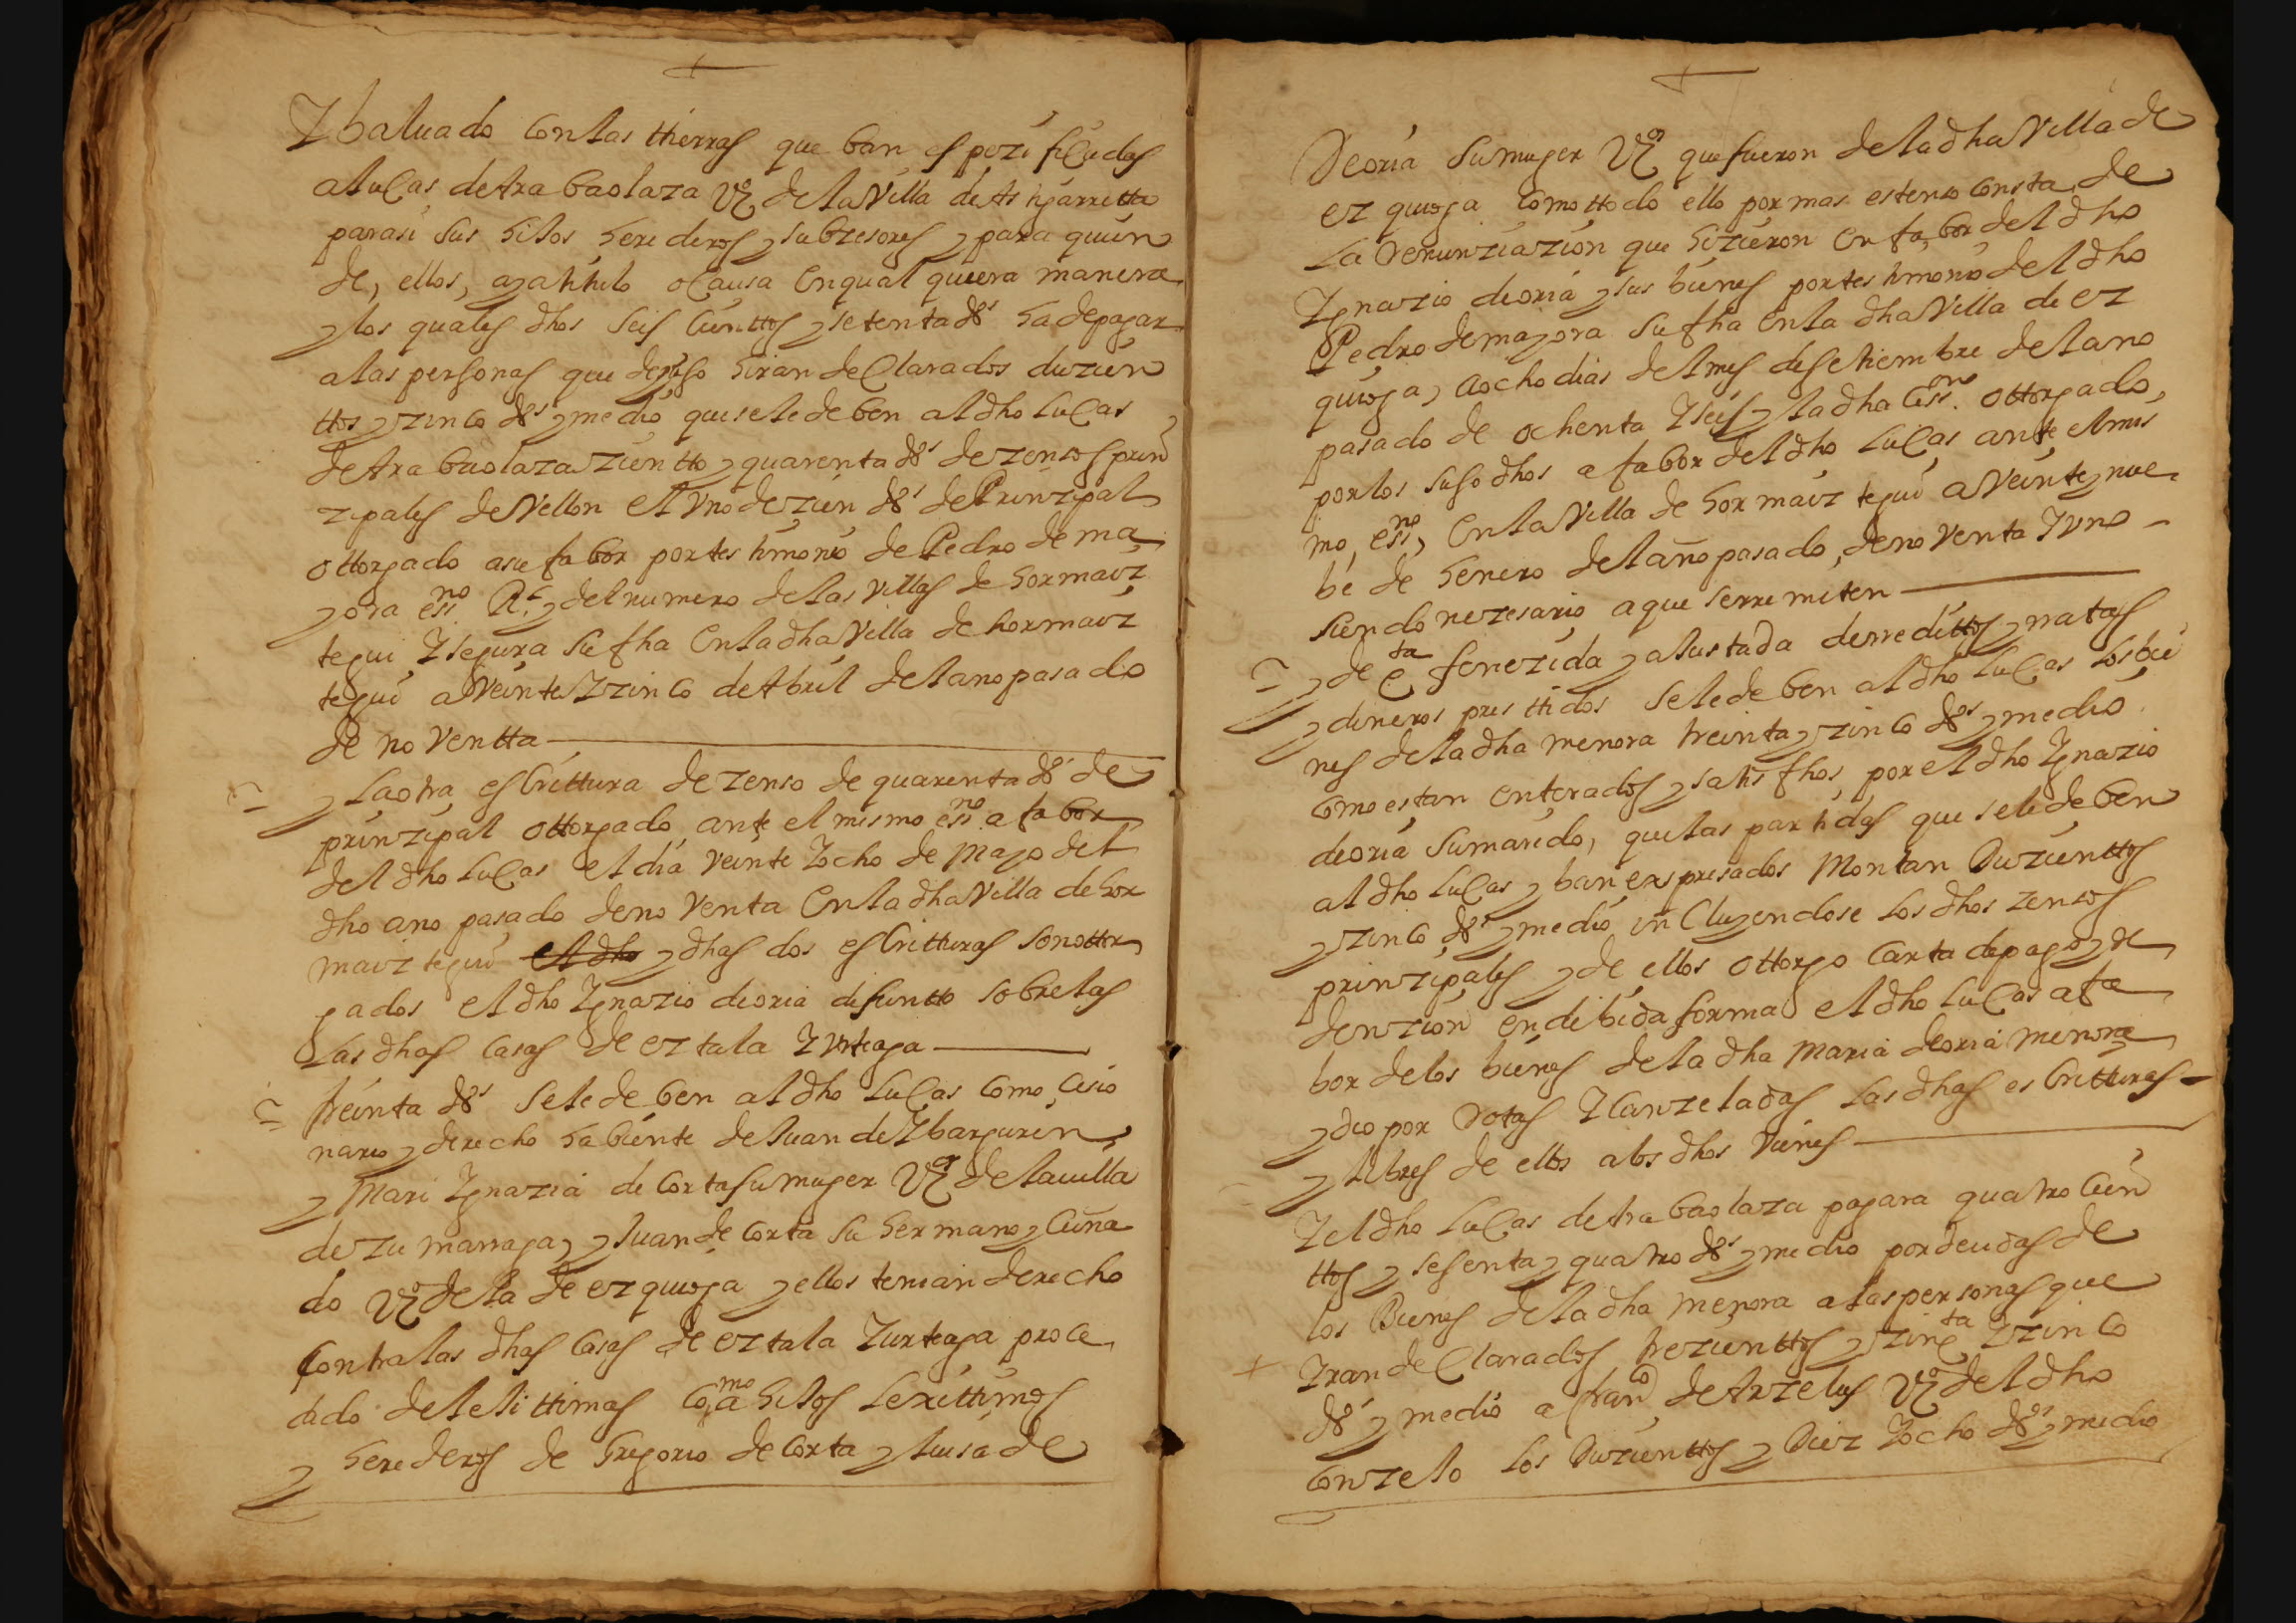 +
Y baluado con las thierras que ban espezificadas
a lucas de Arabaolaza Vº de la Villa de Astigarretta
para si sus hijos herederos y subzesores y para quien
de, ellos, aya títtulo o causa en qual quiera manera
y los quales dhos seis cienttos y setenta dºs ha de pagar
a las personas que deyuso hiran declarados duzien
ttos y zinco dºs y medio que se le deben al dho lucas
de Arabaolaza zientto y quarenta dºs de zensos prin
zipales de Vellon el Vno de zien dºs de Prinzipal
ottorgado a su fabor por testimonio de Pedro de ma
yora essno Rl y del numero de las Villas de hormaiz
tegui Y segura su fha en la dha Villa de hormaiz
tegui a Veinte Y zinco de Abril del ano pasado
de noventta
y la otra escrittura de zenso de quarenta dºs de
prinzipal ottorgado ante el mismo essno a fabor
del dho lucas el dia veinte Yocho de Mayo del
dho ano pasado de noventa en la dha Villa de hor
maiztegui el dho y dhas dos escritturas son ottor
gados el dho Ygnazio de oria difuntto sobre las
las dhas casas de eztala Y Vrteaga
treinta dºs se le deben al dho lucas como cesio
nario y derecho habiente de Juan de Ybarguren
y Mari Ygnazia de Corta su muger Vºs de la villa
de zumarraga, y Juan de Corta su hermano y Cuña
do Vº de la de ezquioga y ellos tenian derecho
contra las dhas casas de eztala Y urteaga proce
dido de lelittimas como a hijos lexittimos
y herederos de Gregorio de Corta y luisa de
+
De oria su muger Vºs que fueron de la dha Villa de
ezquioga como ttodo ello por mas estenso consta de
la renunziazion que hizieron en fabor del dho
Ygnazio de oria y sus bienes por testimonio del dho
Pedro de mayora su fha en la dha Villa de ez
quioga, a ocho dias del mes de setiembre del ano
pasado de ochenta Y seis y la dha cesson ottorgado,
por los suso dhos a fabor del dho lucas ante el mis
mo essno, en la Villa de hormaiztegui a Veinte y nue
be de henero del año pasado, de noventa Y uno
siendo nezesario a que se rremiten
y de cta fenezida y alustada de rredittos y rratas
y dineros presttidos se le deben al dho lucas los bie
nes de la dha menora treinta y zinco dºs y medio
como estan enterados y satisfhos, por el dho Ygnazio
de oria su marido, que las partidas que se le deben
al dho lucas y ban expresados Montan Duzienttos
y zinco dºs y medio incluyendose los dhos zensos
prinzipales y de ellos ottorgo carta de pago y re
denzion en debida forma el dho lucas a fa
bor de los bienes de la dha Maria de oria menora
y dio por rotas Y canzeladas las dhas escritturas
y libres de ellos a los dhos Vienes
Y el dho lucas de Arabaolaza pagara quatro cien
ttos y sesenta y quatro dºs y medio por deudas de
los Bienes de la dha menora a las personas que
Yran declarados trezienttos y zincta Y zinco
dºs y medio a franco de Arzelus Vº del dho
conzejo los Duzienttos y Diez Yocho dºs y medio